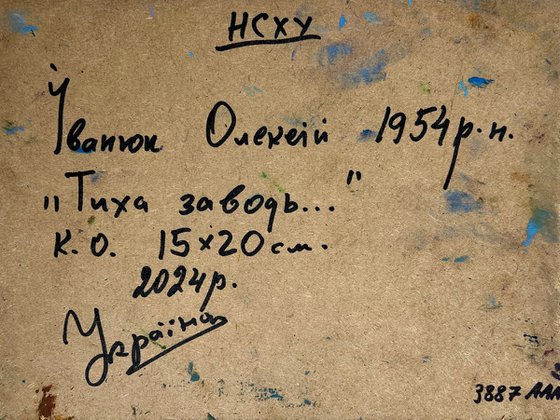 НСХУ
Іванюк Олексій 1954 р.н.
"Тиха заводь..."
к.о. 15х20 см.
2024р.
Україна
3887 ААА